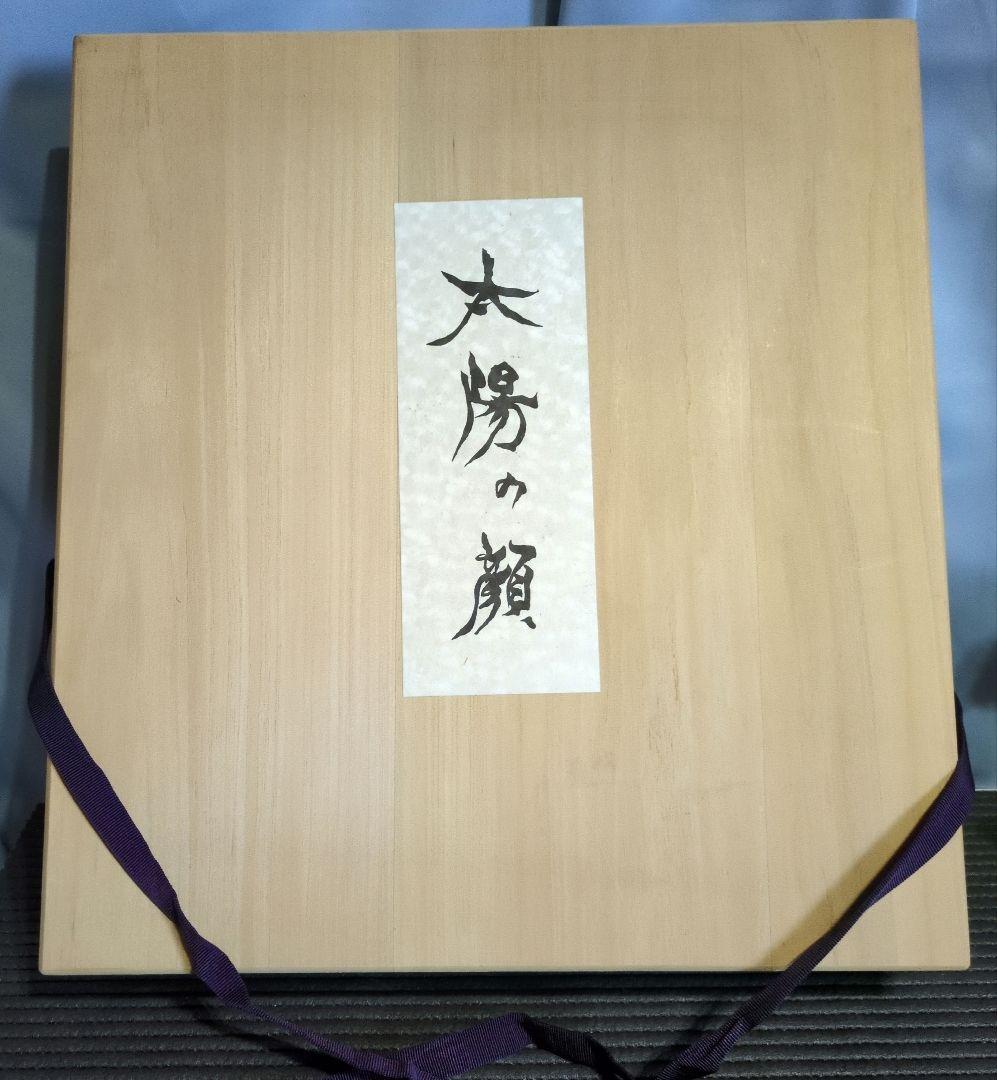 太陽の顔